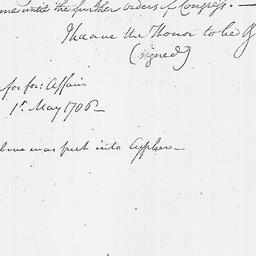 me until the further orders of Congress. —
I have the Honor to be &
(signed)
for for: Affairs
1st. May 1786 —
bove was put into Cypher —